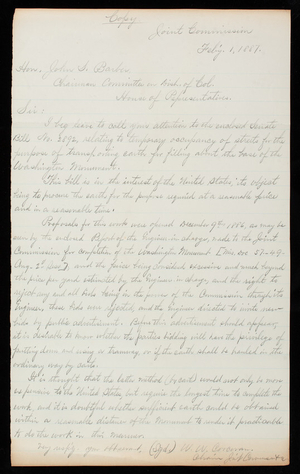 Copy
Joint Commission
Feby. 1, 1887.
Hon. John S. Barbour
Chairman Committee on Dist. of Col.
House of Representatives.
Sir:
I beg leave to call your attention to the enclosed Senate
Bill No. relating to temporary occupancy of streets for the
purpose of transporting earth for filling about the base of the
Washington Monument.
This bill is in the interest of the United States, its object
being to procure the earth for the purpose required at a reasonable price
and in a reasonable time.
Proposals for this work were opened December 9th 1886, as may be
seen by the enclosed Report of the Engineer in charge, made to the Joint
Commission for Completion of the Washington Monument
and the prices being considered excessive and much beyond
the price per yard estimated by the Engineer in charge, and the right to
reject any and all bids being in the power of the Commission through its
Engineer, these bids were rejected, and the Engineer directed to invite new
bids by public advertisement. Before this advertisement should appear,
it is desirable to know whether the parties bidding will have the privilege of
putting down and using a tramway, or if the earth shall be hauled in the
ordinary way by carts.
It is thought that the latter method (by carts) would not only be more
expensive to the United States but require the longest time to complete the
work, and it is doubtful whether sufficient earth could be obtained
within a reasonable distance of the Monument to render it practicable
to do the work in this manner.
Very respy. your obedient, (Sgd.) W. W. Corcoran